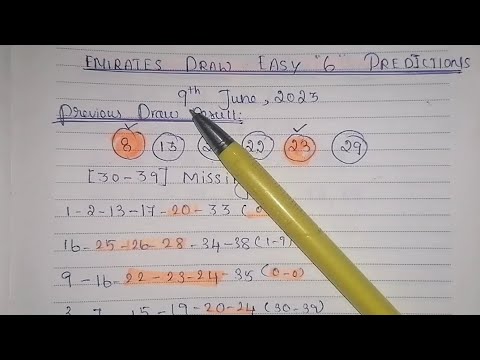 EMIRATES DRAW EASY "6" PREDICTIONS
9th June, 2023
Previous Draw Result:
8 13 22 23 29
[30-39] Missing
1-2-13-17-20-33
16-25-26-28-34-38 (1-9)
9-16-22-23-24-35 (0-0)
15-19-20-24 (30-39)